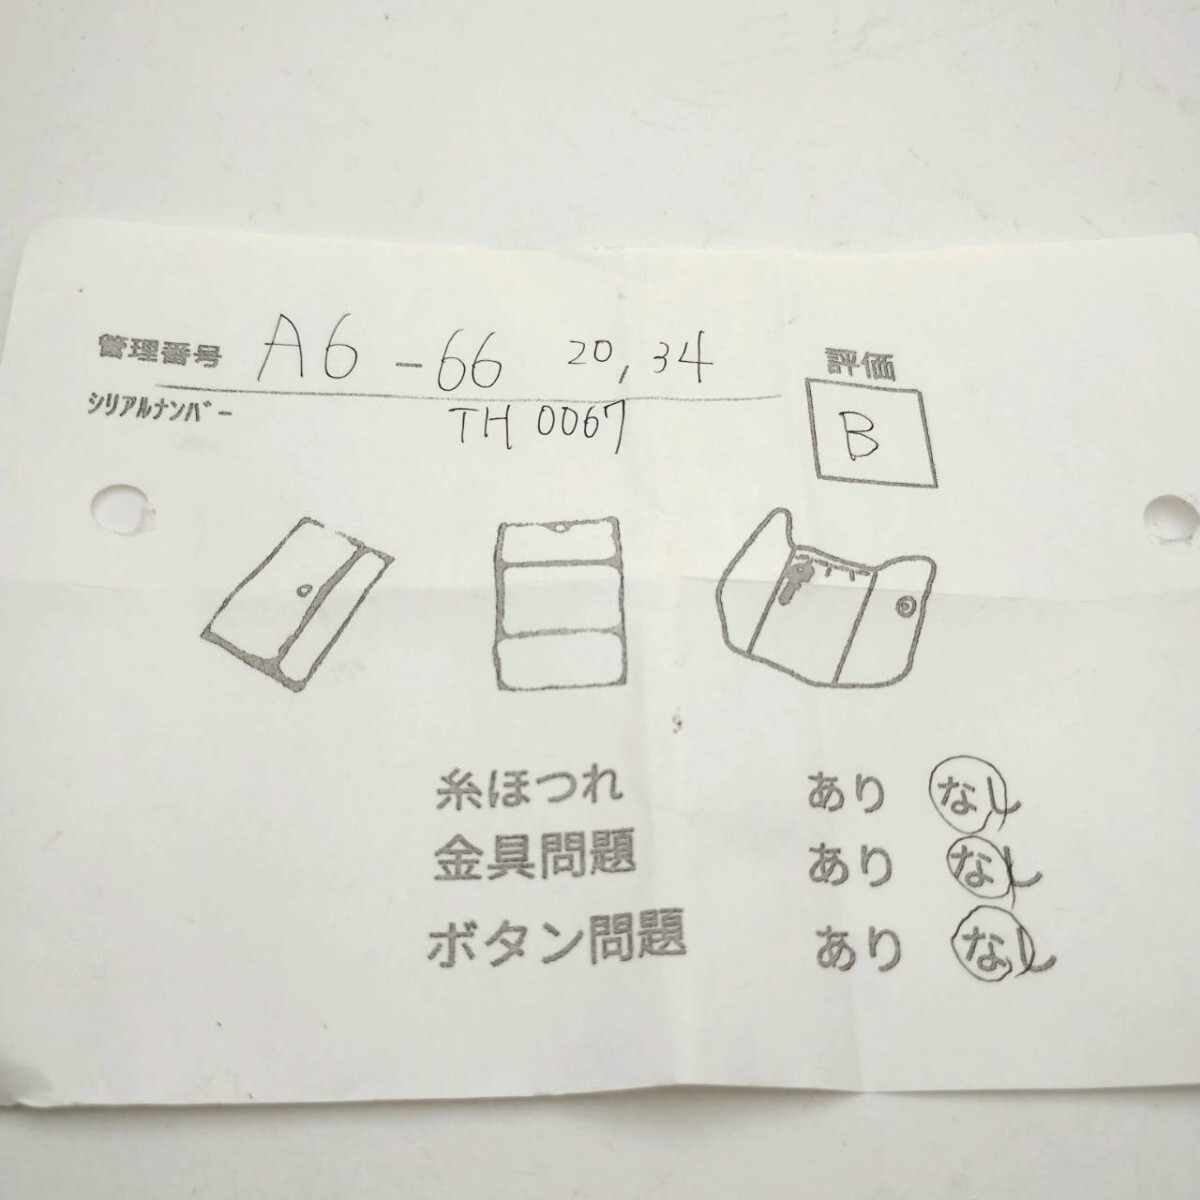 管理番号 A6-66 20,34
シリアルナンバー TH0067
評価
B
糸ほつれ あり なし
金具問題 あり なし
ボタン問題 あり なし